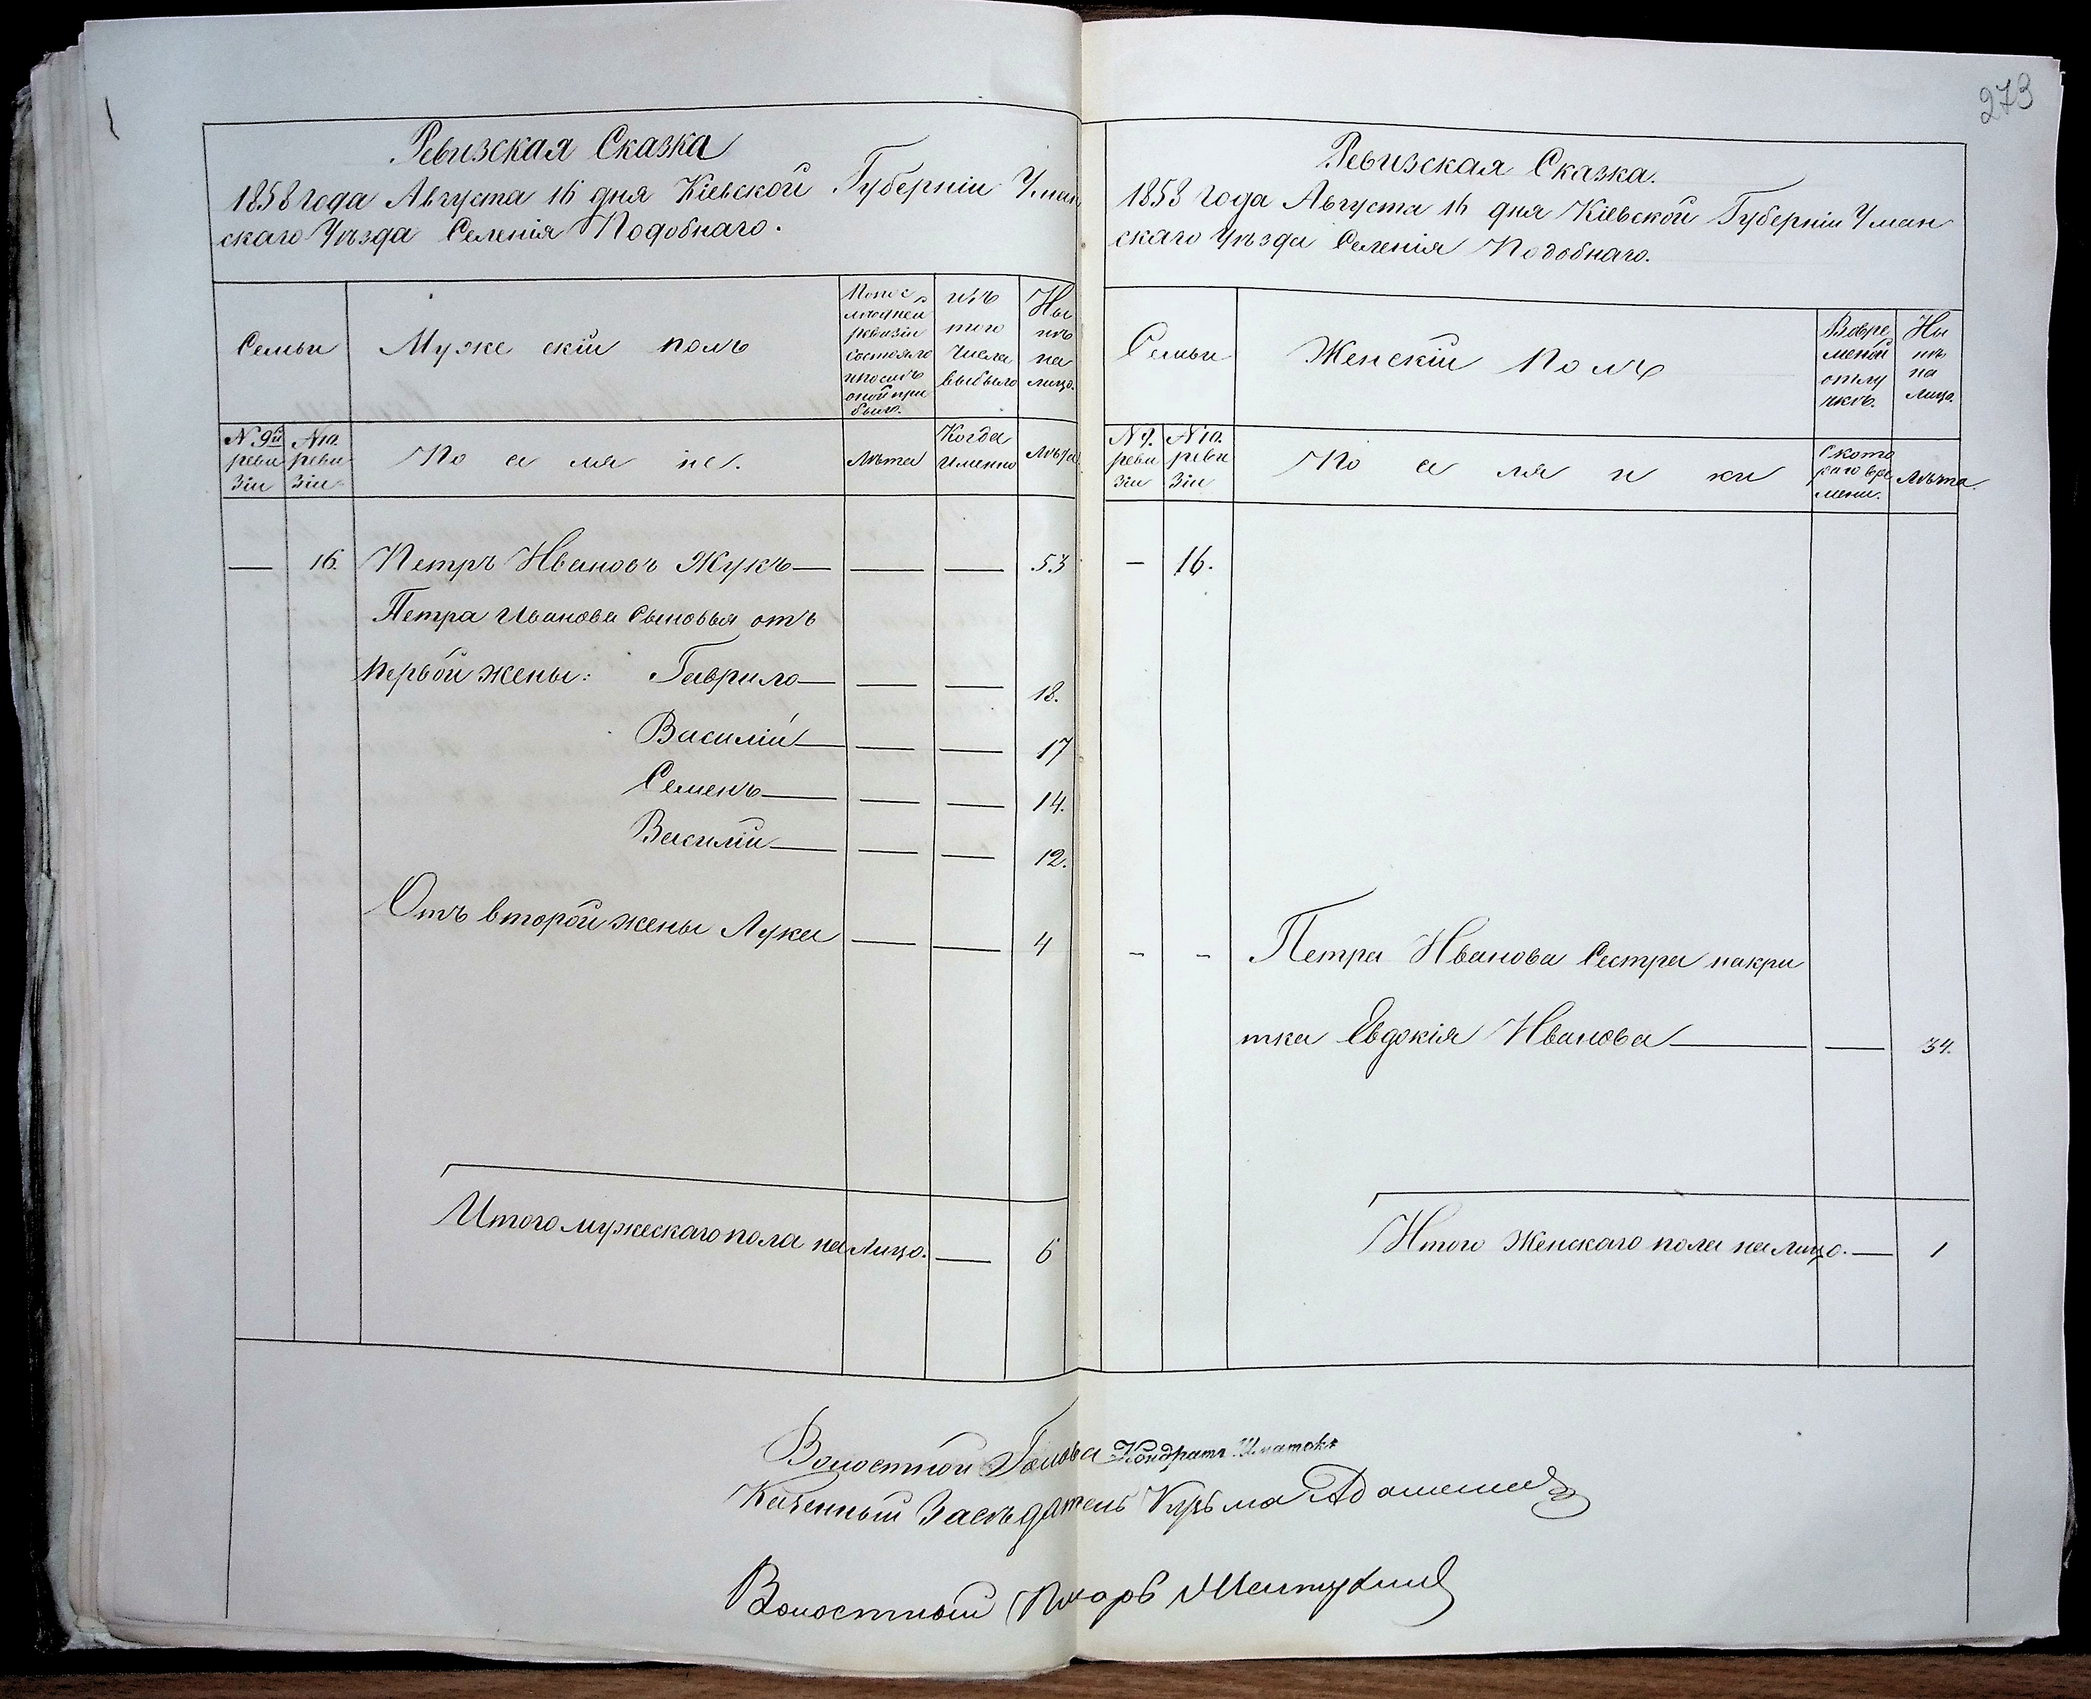 273
Ревизская Сказка
1858 года Августа 16 дня Кіевской Губерніи Уман
скаго Уѣзда Селенія Подобнаго.
Семьи
Мужескій полъ
По пос
лѣдней
ревизіи
состояло
и послѣ
оной при
было.
изъ
того
числа
выбыло
Ны
нѣ
на
лицо.
№ 9й
реви
зіи
№ 10.
реви
зіи
Поаляне.
Лѣта
Когда
именно
Лѣта
— 16. Петръ Ивановъ Жукъ — — — 53
Петра Иванова Сыновья отъ
первой жены: Гаврило — — — 18.
Василій — — — 17
Семенъ — — — 14.
Василій — — — 12.
Отъ второй жены Лука — — 4
Итого мужескаго пола на лицо. — 6
Ревизская Сказка.
1858 года Августа 16 дня Кіевской Губерніи Уман
скаго Уѣзда Селенія Подобнаго.
Семьи
Женскій Полъ
Во вре
меной
отлу
чкѣ.
Ны
нѣ
на
лицо.
№ 9.
реви
зіи
№ 10.
реви
зіи
Поалянки
С кото
раго вре
мени.
Лѣта.
— 16.
— — Петра Иванова Сестра накри
тка Евдокія Иванова — — 34.
Итого Женскаго пола на лицо. — 1
Волостной Голова Кондратъ
Казенный Засѣдатель Кузьма
Волостный Писарь